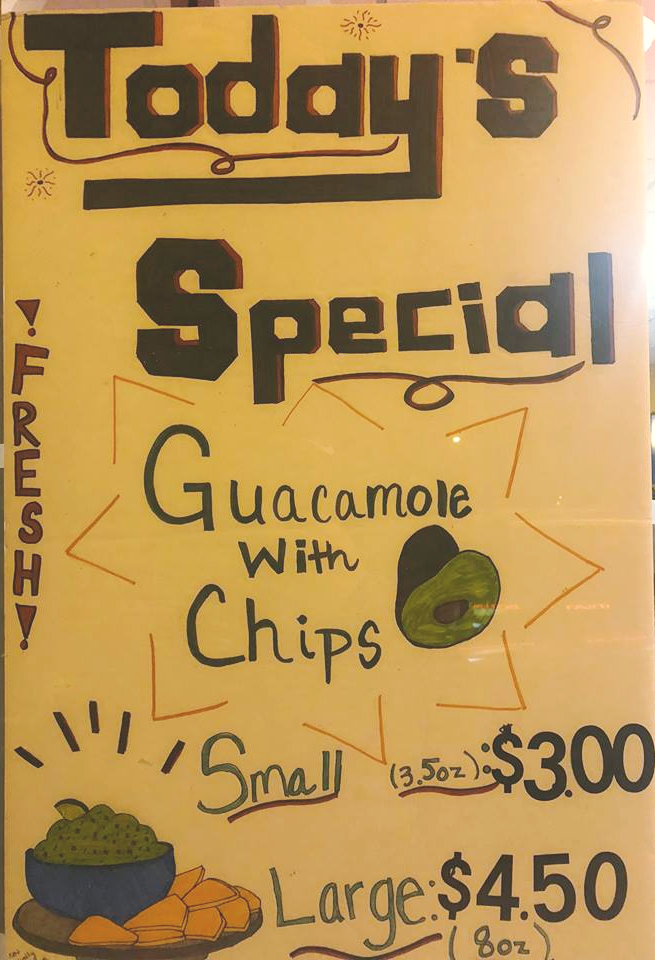 Today's
Special
! FRESH!
Guacamole
With
Chips
Small (3.5oz): $3.00
Large: $4.50
(8oz)